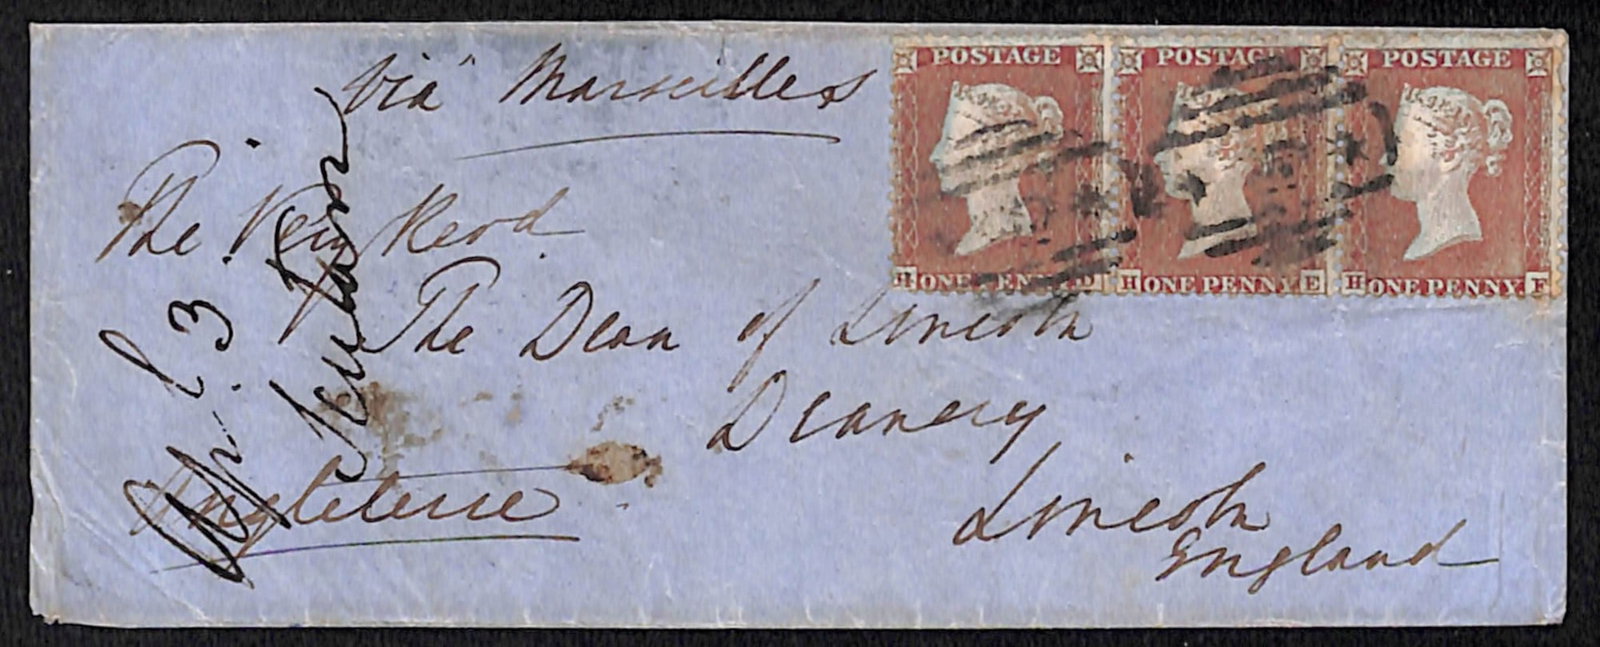 via Marseilles
The Very Revd
The Dean of Lincoln
Deanery
Lincoln
England
Angleterre
3
POSTAGE
H ONE PENNY D
POSTAGE
H ONE PENNY E
POSTAGE
H ONE PENNY F